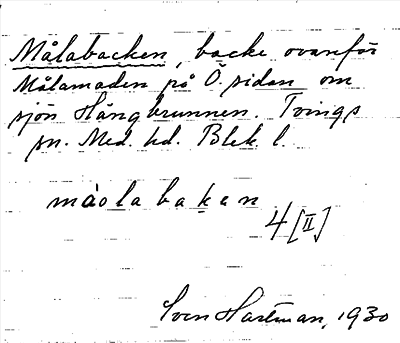 Målabacken, backe ovanför
Målamaden på Ö. sidan om
sjön Hångbrunnen. Tvings
sn. Med. hd. Blek. l.
màola baḵen
4[II]
Sven Hartman, 1930